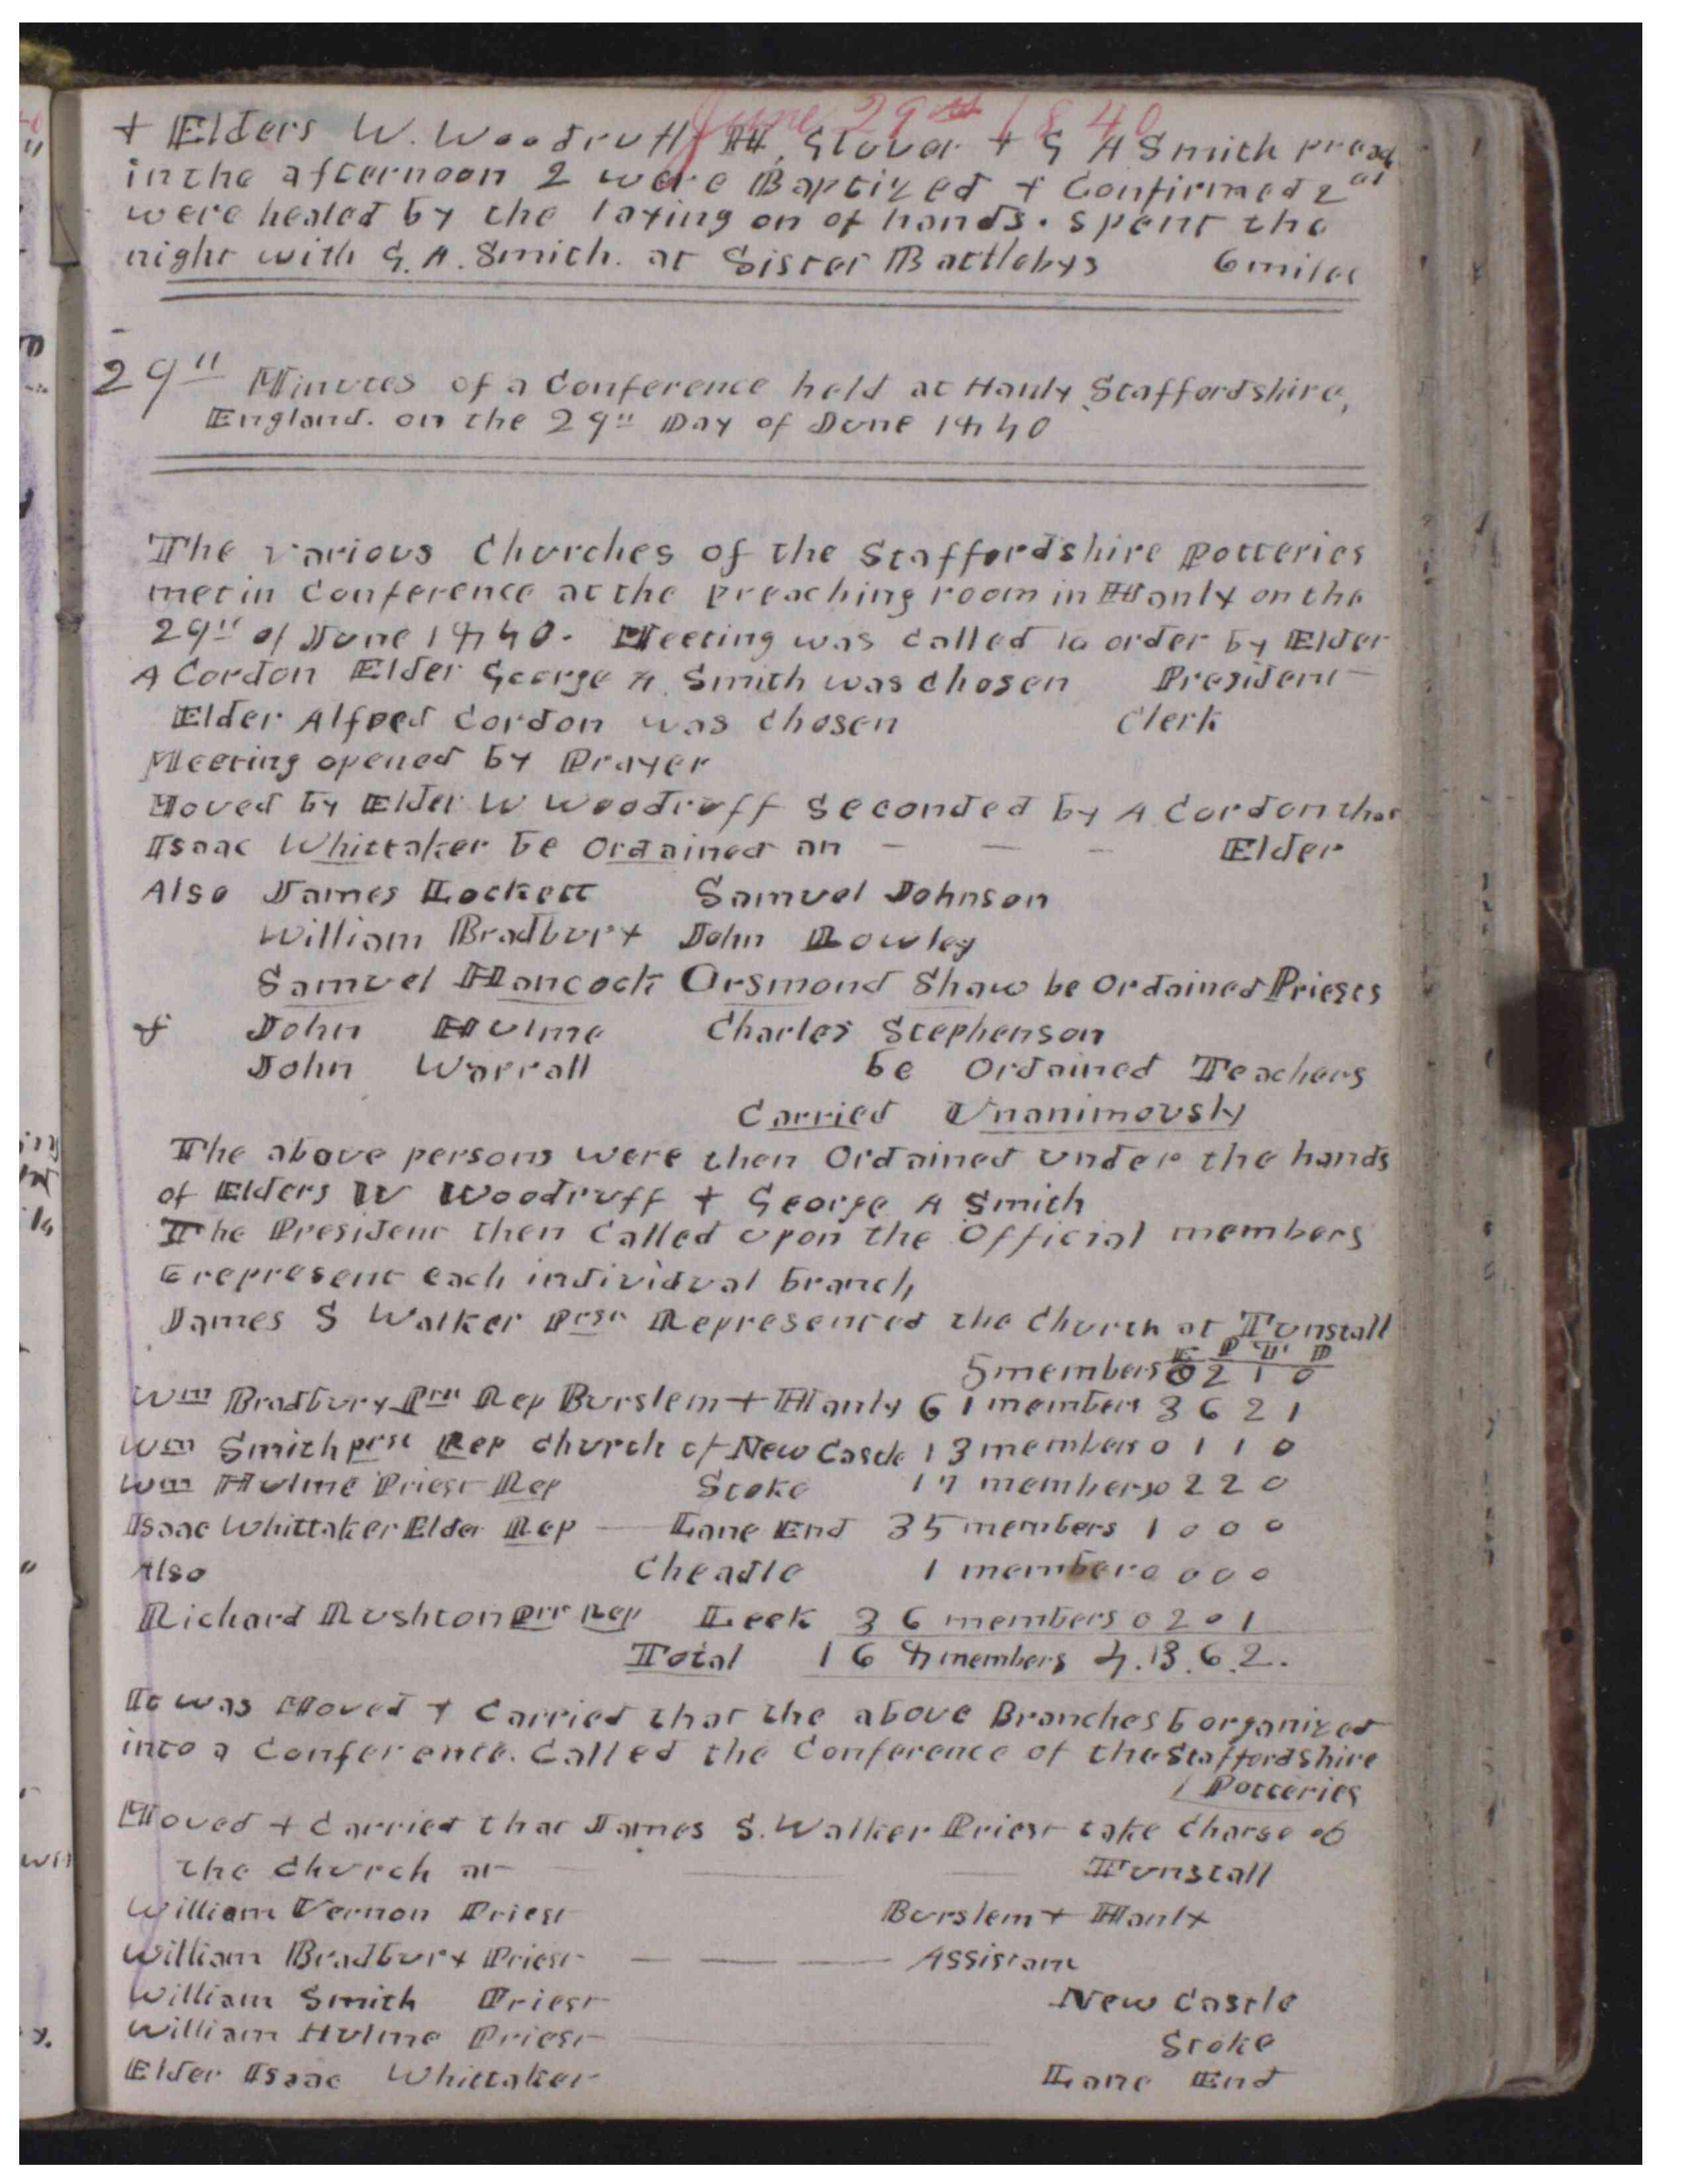 June 29th 1840
+ Elders W. Woodruff H. Glover + G A Smith preach
in the afternoon 2 were Baptized + Confirmed 2
were healed by the laying on of hands. spent the
night with G. A. Smith. at Sister Battlebys 6 miles
29th Minutes of a Conference held at Hanly Staffordshire,
England. on the 29th Day of June 1840
The various Churches of the Staffordshire Potteries
met in Conference at the preaching room in Hanly on the
29th of June 1840. Meeting was called to order by Elder
A Cordon Elder George A. Smith was chosen President
Elder Alfred Cordon was chosen Clerk
Meeting opened by Prayer
Moved by Elder W Woodruff Seconded by A Cordon that
Isaac Whittaker be Ordained an — — — Elder
Also James Lockett Samuel Johnson
William Bradbury John Rowley
Samuel Hancock Orsmond Shaw be Ordained Priests
+ John Hulme Charles Stephenson
John Warrall be Ordained Teachers
Carried Unanimously
The above persons were then Ordained under the hands
of Elders W Woodruff + George A Smith
The President then Called upon the Official members
to represent each individual branch
James S Walker Prst Represented the Church at Tunstall
E P T D
5 members 0 2 1 0
Wm Bradbury Prst Rep Burslem + Hanly 61 members 3 6 2 1
Wm Smith prst Rep Church of New Castle 13 members 0 1 1 0
Wm Hulme Priest Rep Stoke 17 members 0 2 2 0
Isaac Whittaker Elder Rep — Lane End 35 members 1 0 0 0
Also Cheadle 1 member 0 0 0 0
Richard Rushton Prst Rep Leek 36 members 0 2 0 1
Total 168 members 4. 13. 6. 2.
It was Moved + Carried that the above Branches b organized
into a Conference. Called the Conference of the Staffordshire
Potteries
Moved + Carried that James S. Walker Priest take Charge of
the Church at — — — Tunstall
William Vernon Priest Burslem + Hanly
William Bradbury Priest — — — Assistant
William Smith Priest New Castle
William Hulme Priest — Stoke
Elder Isaac Whittaker Lane End